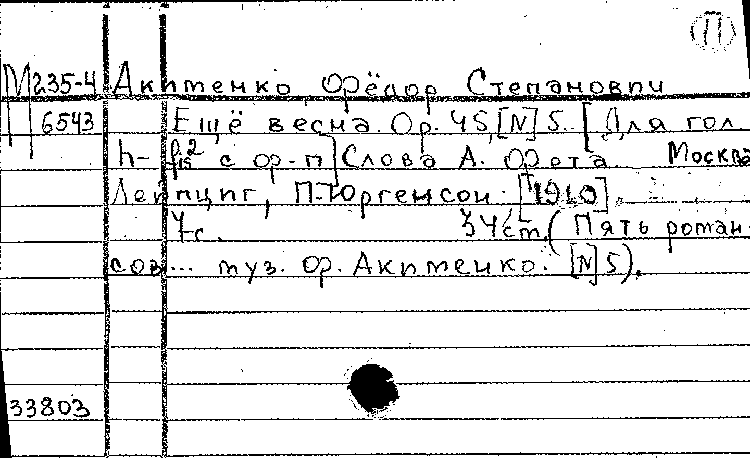 П
М 235-4 Акименко Фёдор Степанович
6543 Ещё весна. Op. 45, [N] 5. [Для гол.
h- с ф-п] Слова А. Фета. Москва
Лейпциг, П. Юргенсон. [1910].
7 с. 34 см. (Пять роман-
сов... муз. Ф. Акименко. [N] 5).
33803